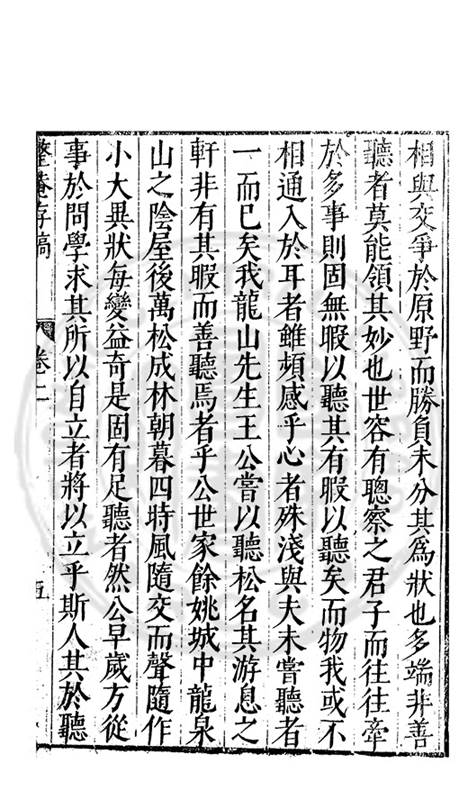 相與交爭於原野而勝負未分其爲狀也多端非善
聽者莫能領其妙也世容有聰察之君子而往往牽
於多事則固無暇以聽其有暇以聽矣而物我或不
相通入於耳者雖頻感乎心者殊淺與夫未嘗聽者
一而已矣我龍山先生王公嘗以聽松名其游息之
軒非有其暇而善聽焉者乎公世家餘姚城中龍泉
山之陰屋後萬松成林朝暮四時風隨交而聲隨作
小大異狀每變益奇是固有足聽者然公早歲方從
事於問學求其所以自立者將以立乎斯人其於聽
整菴存稿 卷二 五